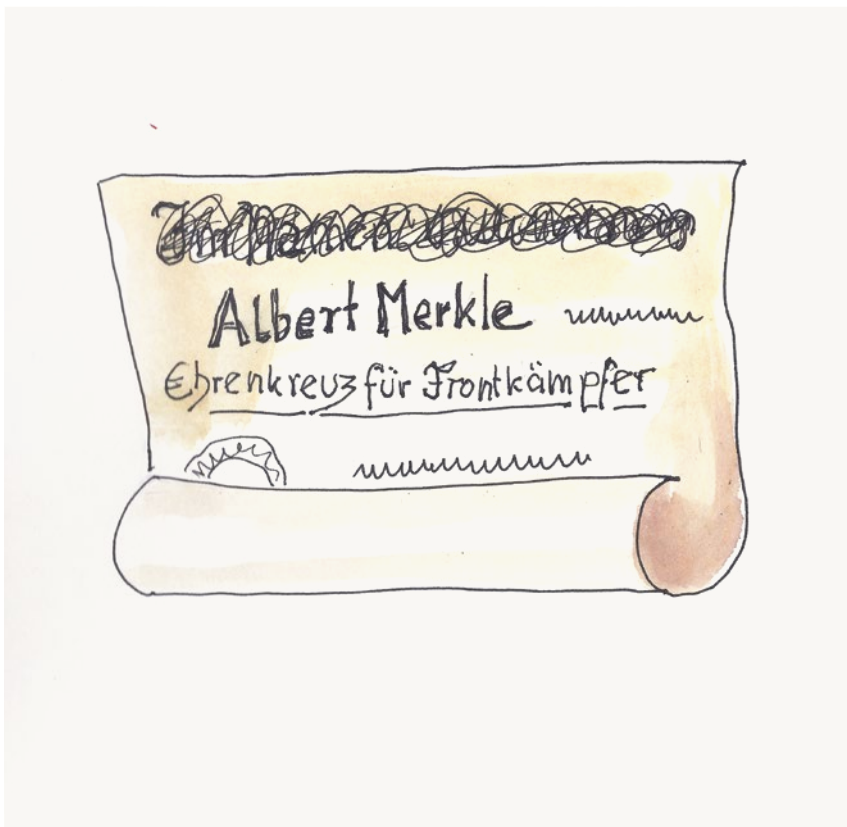 Im Namen
Albert Merkle
Ehrenkreuz für Frontkämpfer